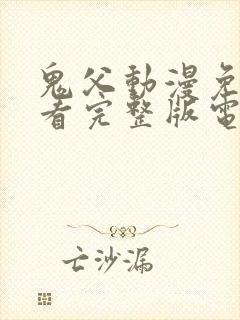 鬼父動漫免
看完整版電
亡沙漏